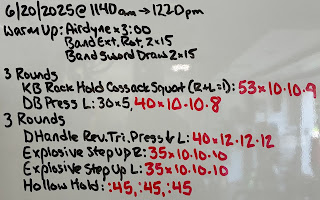 6/20/2025 @ 1140am → 1220pm
Warm Up: Airdyne x 3:00
Band Ext. Rot. 2x15
Band Sword Draw 2x15
3 Rounds
KB Rack Hold Cossack Squat (R+L=1): 53x10·10·9
DB Press L: 30x5, 40x10·10·8
3 Rounds
D Handle Rev. Tri. Press ↓ L: 40x12·12·12
Explosive Step Up R: 35x10·10·10
Explosive Step Up L: 35x10·10·10
Hollow Hold: :45, :45, :45